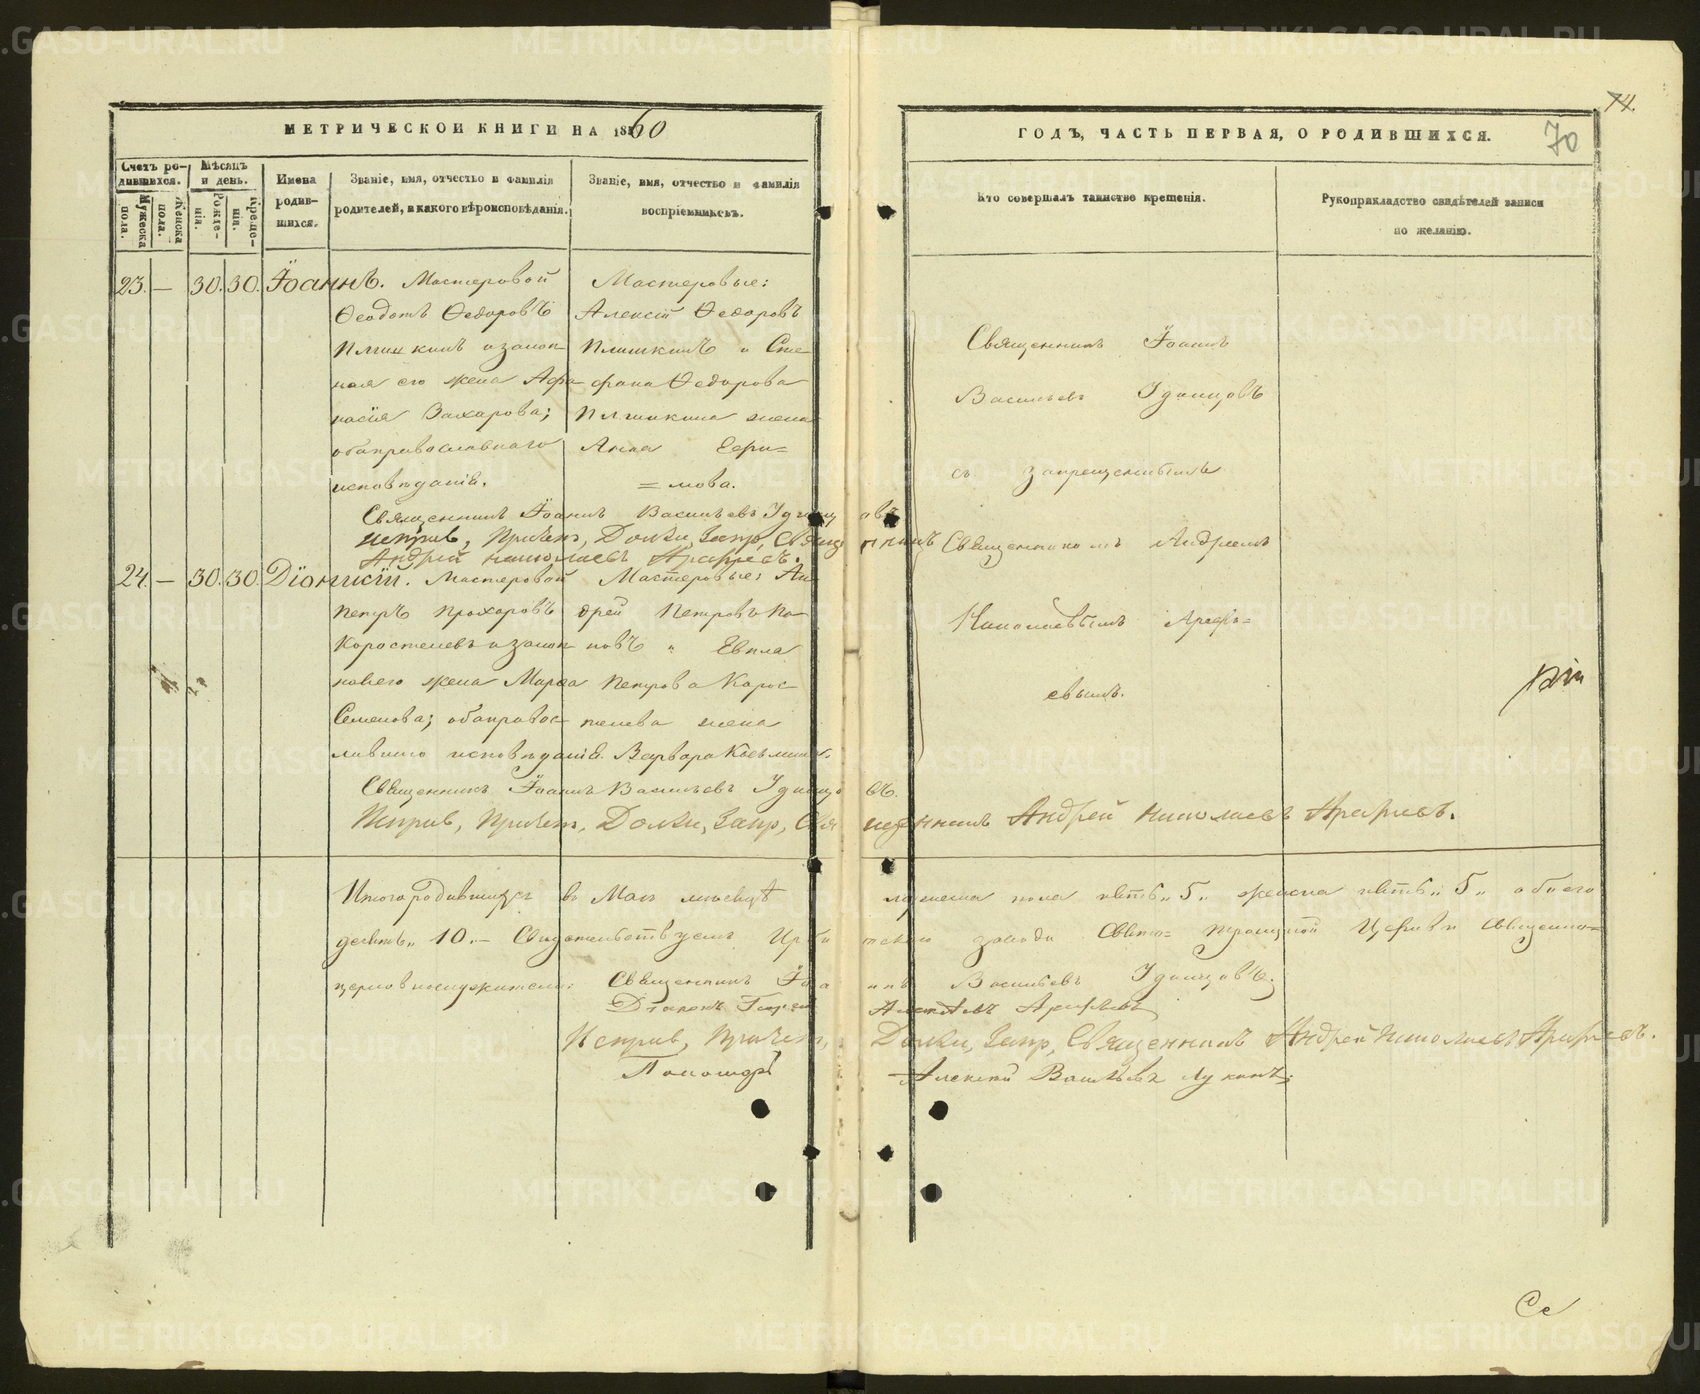 МЕТРИЧЕСКОЙ КНИГИ НА 1860
ГОДЪ, ЧАСТЬ ПЕРВАЯ, О РОДИВШИХСЯ.
74.
70
Счетъ родившихся.
Мужеска пола.
Женска пола.
Мѣсяцъ и день.
Рожденія.
Крещенія.
Имена родившихся.
Званіе, имя, отчество и фамилія
родителей, и какого вѣроисповѣданія.
Званіе, имя, отчество и фамилія
воспріемниковъ.
Кто совершалъ таинство крещенія.
Рукоприкладство свидѣтелей записи
по желанію.
23. — 30. 30. Іоаннъ.
Мастеровой
Ѳеодотъ Ѳедоровъ
Плишкинъ и закон
ная его жена Афа
насія Захарова;
обаправославнаго
исповѣданія.
Мастеровые:
Алексій Ѳедоровъ
Плишкинъ и Сте
фана Ѳедорова
Плишкина жена
Анна Ефи=
=мова.
Священникъ Іоаннъ
Васильевъ Удинцовъ
съ запрещеннымъ
Священникомъ Андреемъ
Николаевымъ Арефь=
евымъ.
Священникъ Іоаннъ Васильевъ Удинцовъ
Исправ, Причет, Должн, Запр, Священникъ
Андрей Николаевъ Арефьевъ.
24. — 30. 30. Діонисій.
Мастеровой
Петръ Прохоровъ
Коростелевъ и закон
наяего жена Марѳа
Семенова; обаправос
лавнаго исповѣданія.
Мастеровые: Ан
дрей Петровъ По
повъ и Евпла
Петрова Корос
телева жена
Варвара Козьмина.
Священникъ Іоаннъ Васильевъ Удинцовъ.
Исправ, Причет, Должн, Запр, Священникъ Андрей Николаевъ Арефьевъ.
Итого родившихся въ Маѣ мѣсяцѣ мужеска пола пять „5„ женска пять „5„ обоего
десять „10.— Свидетельствуемъ Ирбитскаго завода Свято=Троицкой Церкви священно=
церковнослужители: Священникъ Іоаннъ Васильевъ Удинцовъ.
Діаконъ Георгій Арефьевъ
Исправ, Причет, Должн, Запр, Священникъ Андрей Николаевъ Арефьевъ.
Пономарь Алексій Васильевъ Луканъ.
Се
METRIKI.GASO-URAL.RU